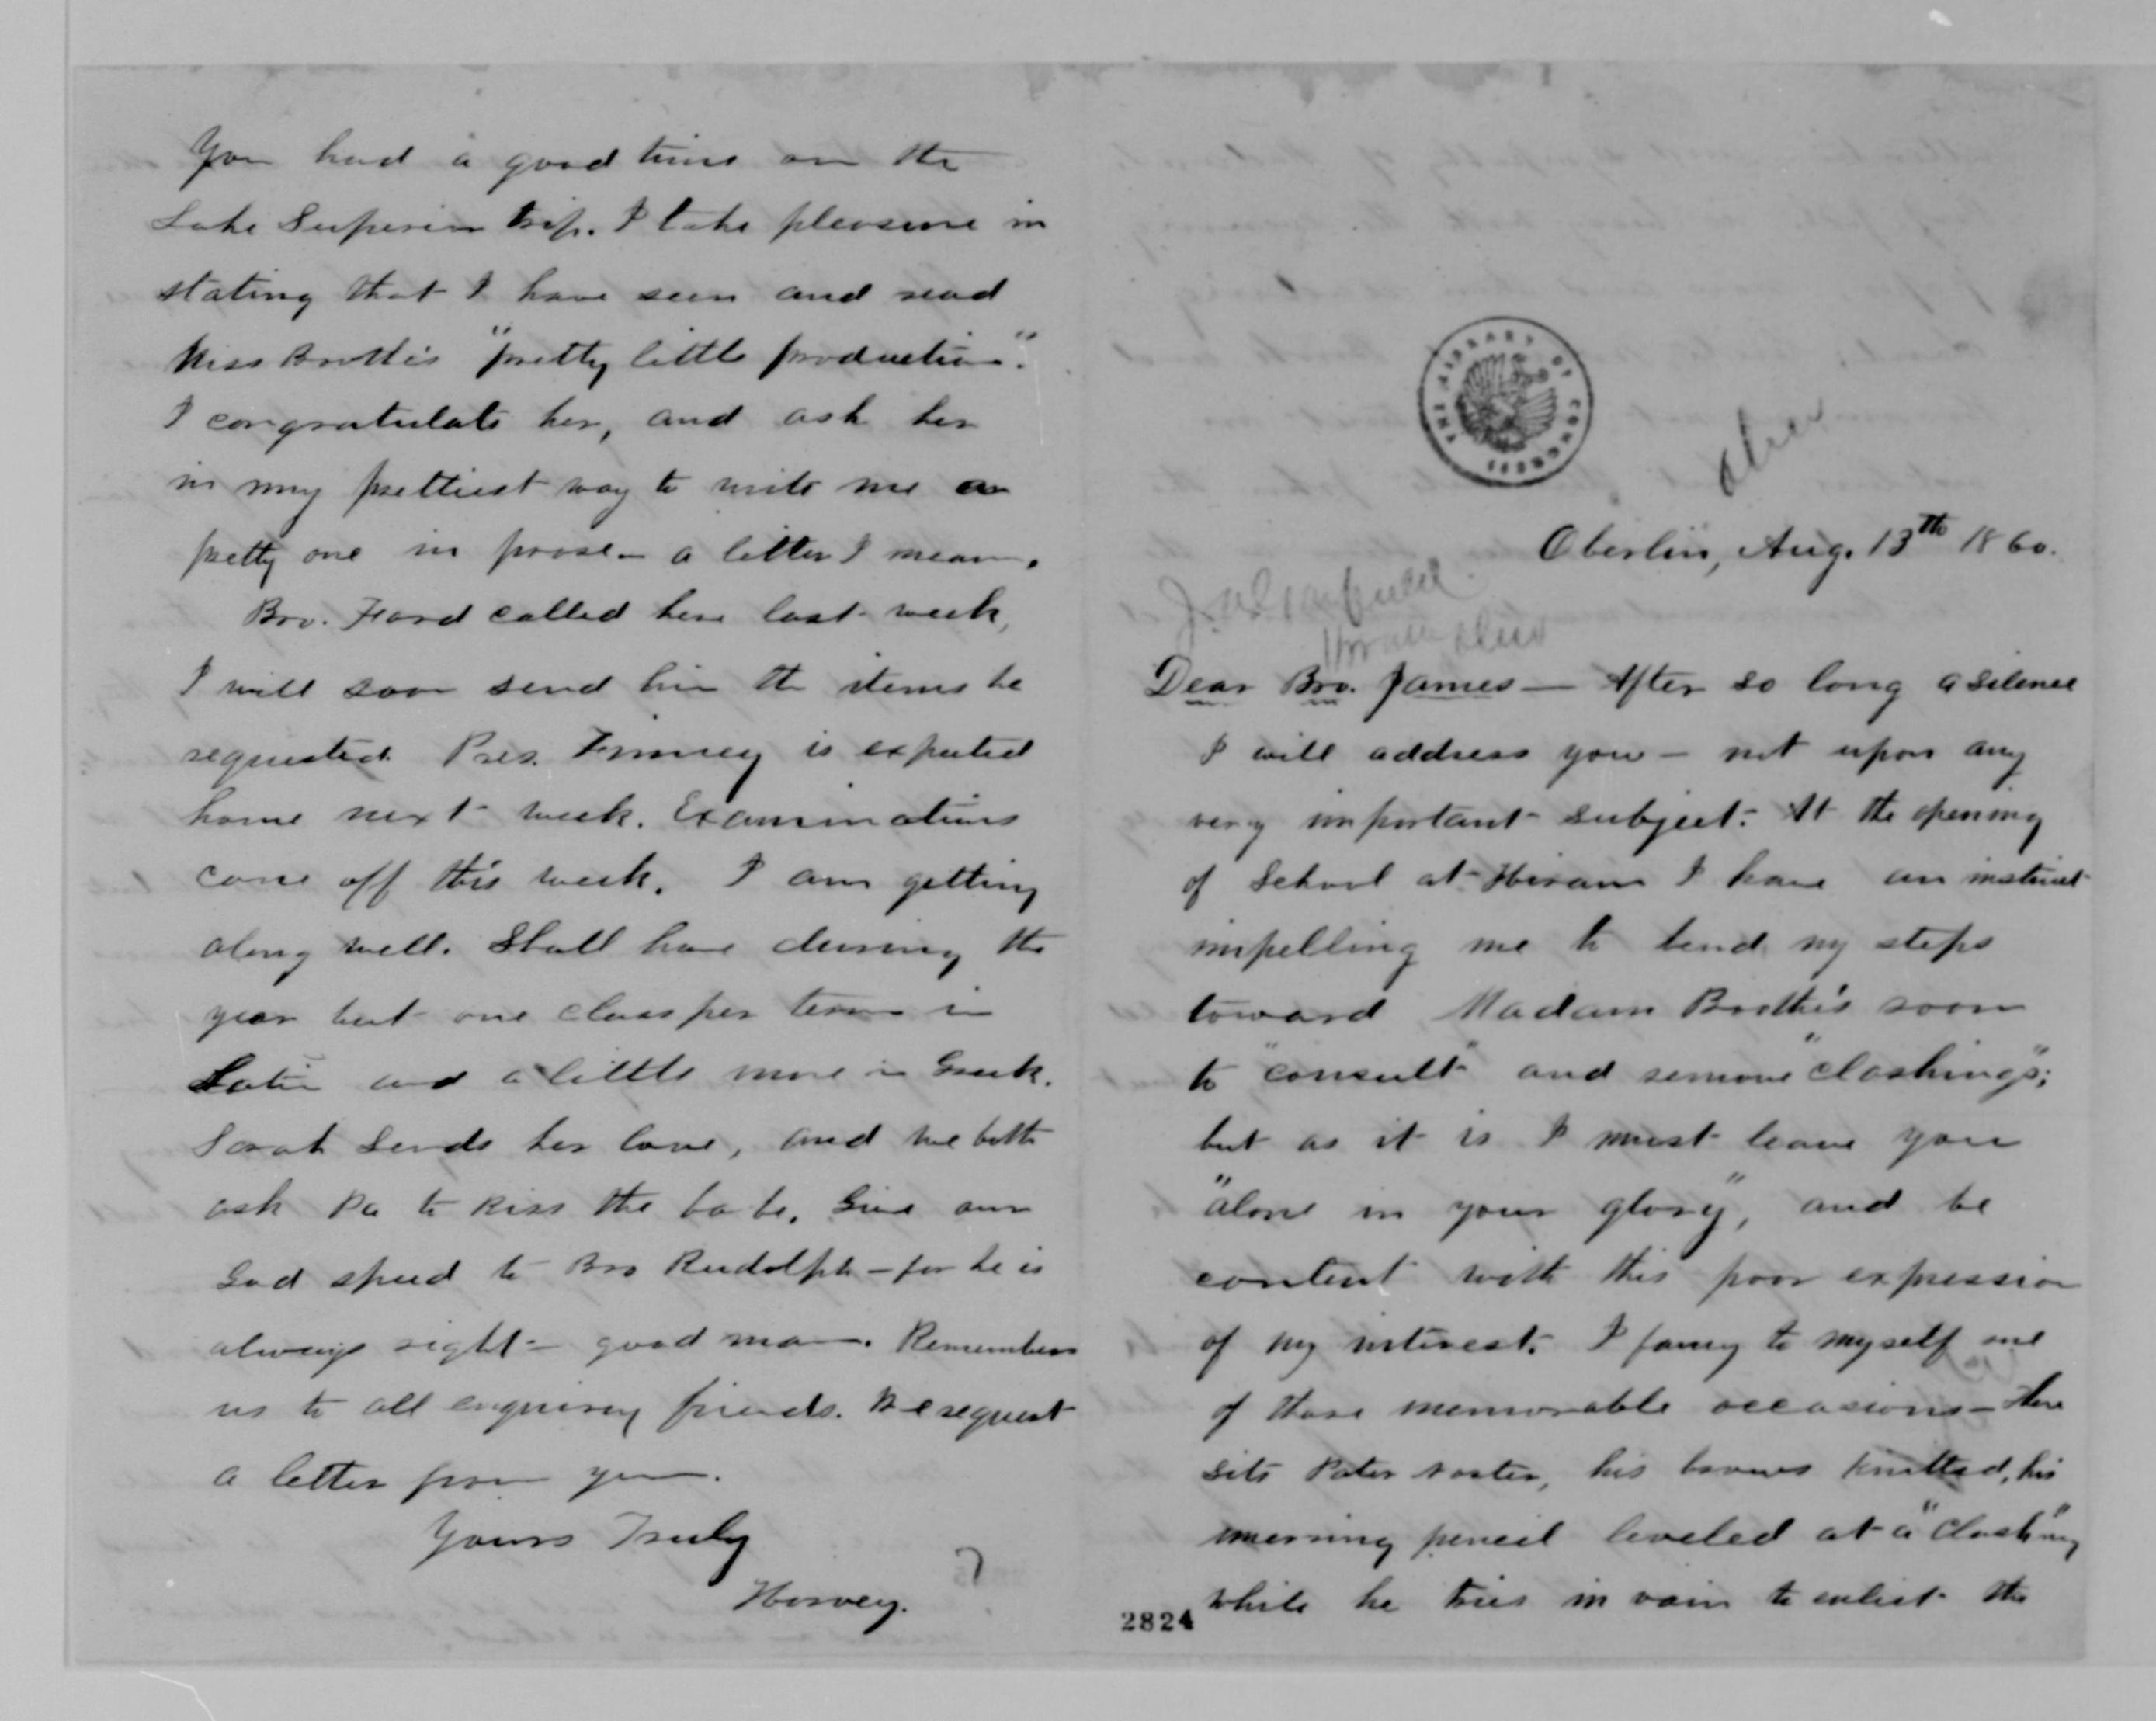 You had a good time on the
Lake Superior trip. I take pleasure in
stating that I have seen and read
Miss Booth's "pretty little production".
I congratulate her, and ask her
in my prettiest way to write me a
pretty one in prose - a letter I mean.
Bro. Ford called here last week,
I will soon send him the items he
requested. Pres. Finney is expected
home next week. Examinations
come off this week. I am getting
along well. Shall have during the
year but one class per term in
Latin and a little more in Greek.
Sarah sends her love, and we both
ask Pa to kiss the babe. Give our
God speed to Bro Rudolph - for he is
always right - good man. Remember
us to all enquiring friends. We request
a letter from you.
Yours Truly
Harvey.
7
THE LIBRARY OF CONGRESS
Ohio
Oberlin, Aug. 13th 1860.
J. A. Garfield
Hiram Ohio
Dear Bro. James — After so long a silence
I will address you - not upon any
very important subject. At the opening
of School at Hiram I have an instinct
impelling me to bend my steps
toward Madam Booth's room
to "consult" and remove "clashings";
but as it is I must leave you
"alone in your glory", and be
content with this poor expression
of my interest. I fancy to myself one
of those memorable occasions - there
sits Pater noster, his brows knitted, his
unerring pencil leveled at a "clashing"
while he tries in vain to enlist the
2824